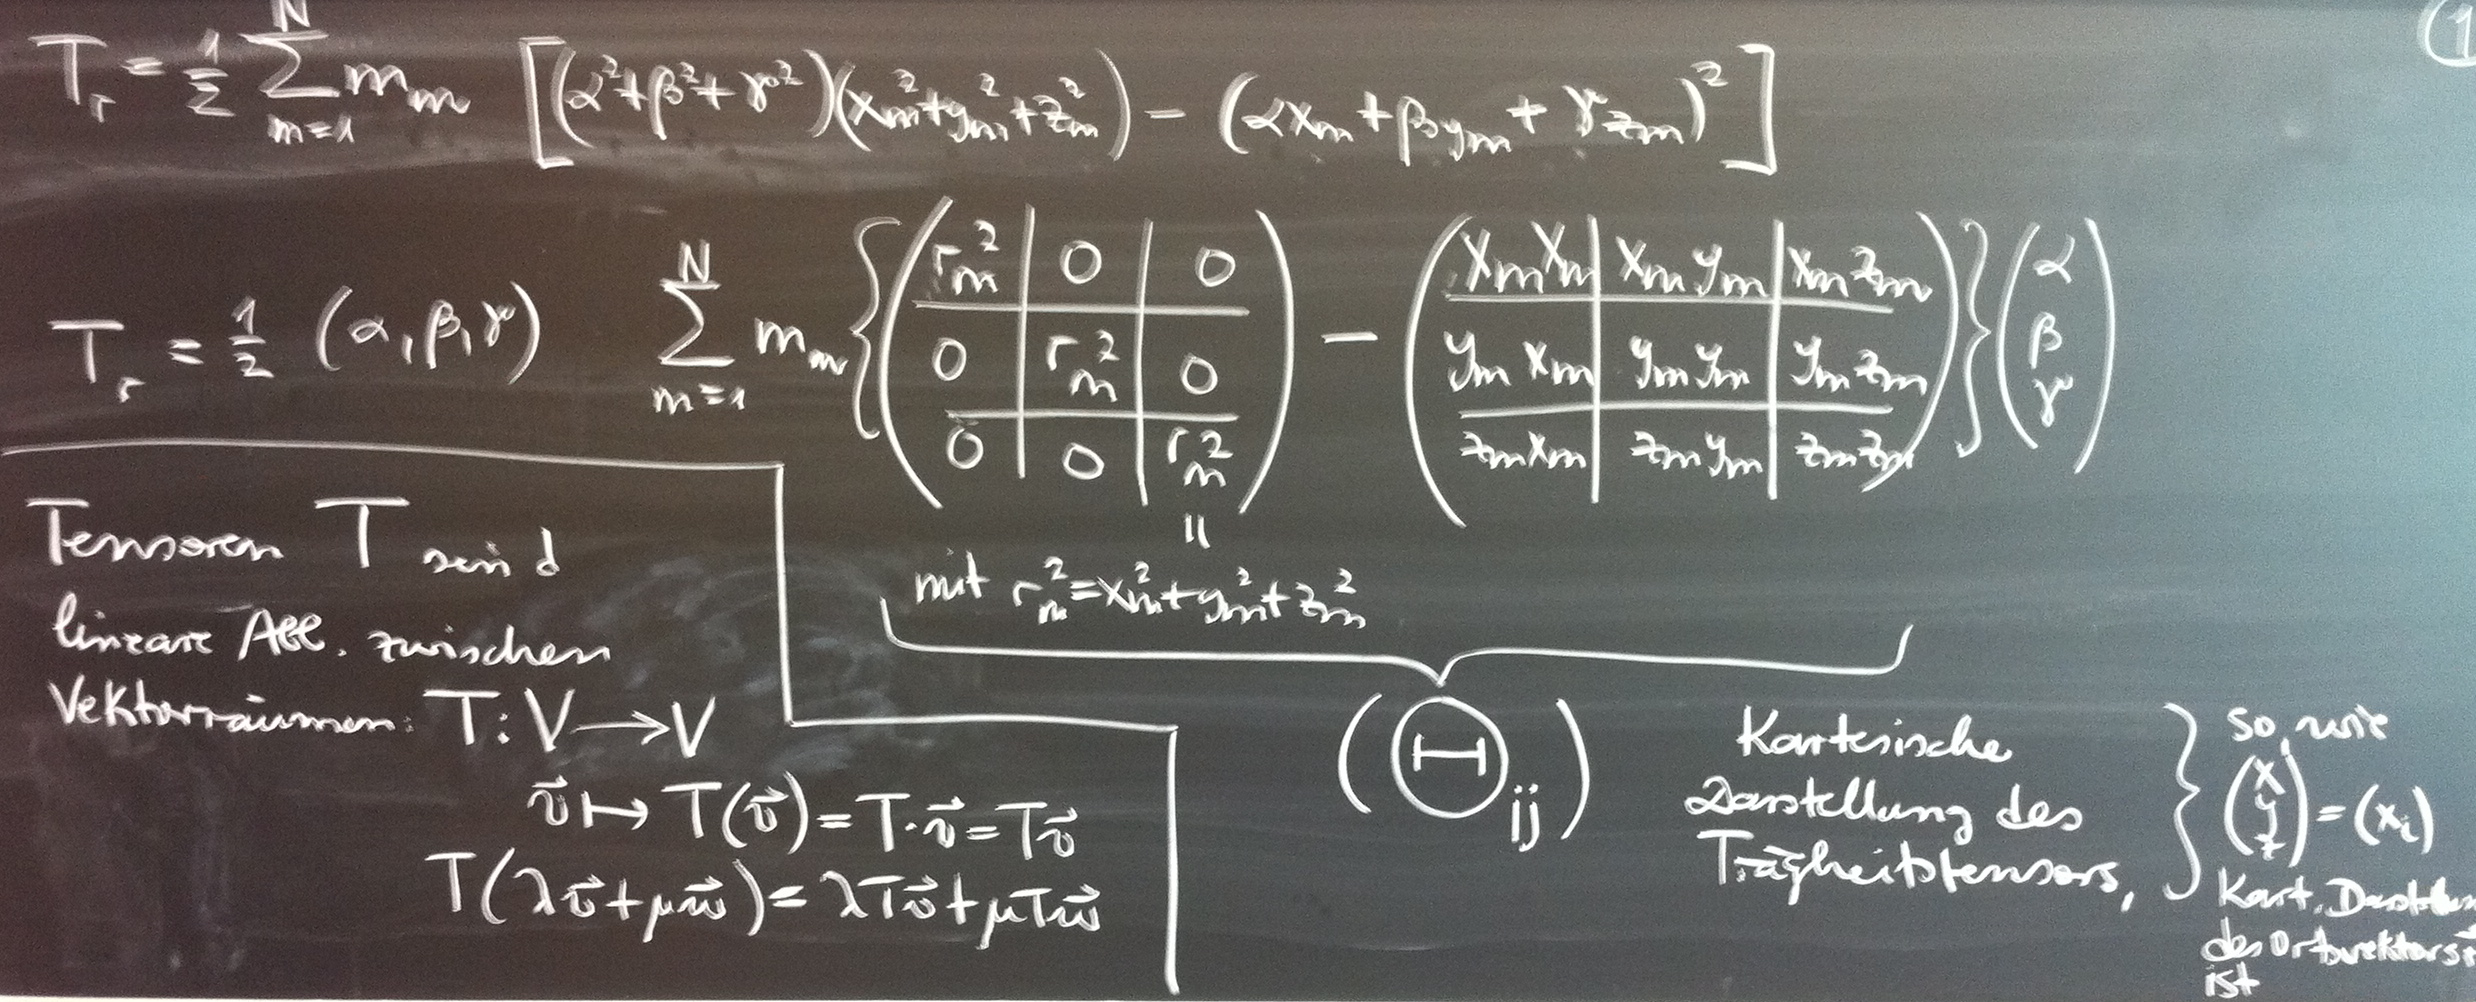 ①
T_r = 1/2 ∑_{m=1}^{N} m_m [(α²+β²+γ²)(x_m²+y_m²+z_m²) − (αx_m+βy_m+γz_m)²]
T_r = 1/2 (α,β,γ) ∑_{m=1}^{N} m_m {( r_m² | 0 | 0 ) − ( x_m x_m | x_m y_m | x_m z_m )} ( α )
( 0 | r_m² | 0 ) ( y_m x_m | y_m y_m | y_m z_m ) ( β )
( 0 | 0 | r_m² ) ( z_m x_m | z_m y_m | z_m z_m ) ( γ )
=
mit r_m² = x_m²+y_m²+z_m²
(Θ_ij)
Kartesische
Darstellung des
Trägheitstensors,
} so, wie
(x y z) = (x_i)
Kart.
des Ortsvektors
ist
Tensoren T sind
lineare Abb. zwischen
Vektorräumen: T: V → V
v⃗ ↦ T(v⃗) = T·v⃗ = Tv⃗
T(λv⃗+μw⃗) = λTv⃗+μTw⃗